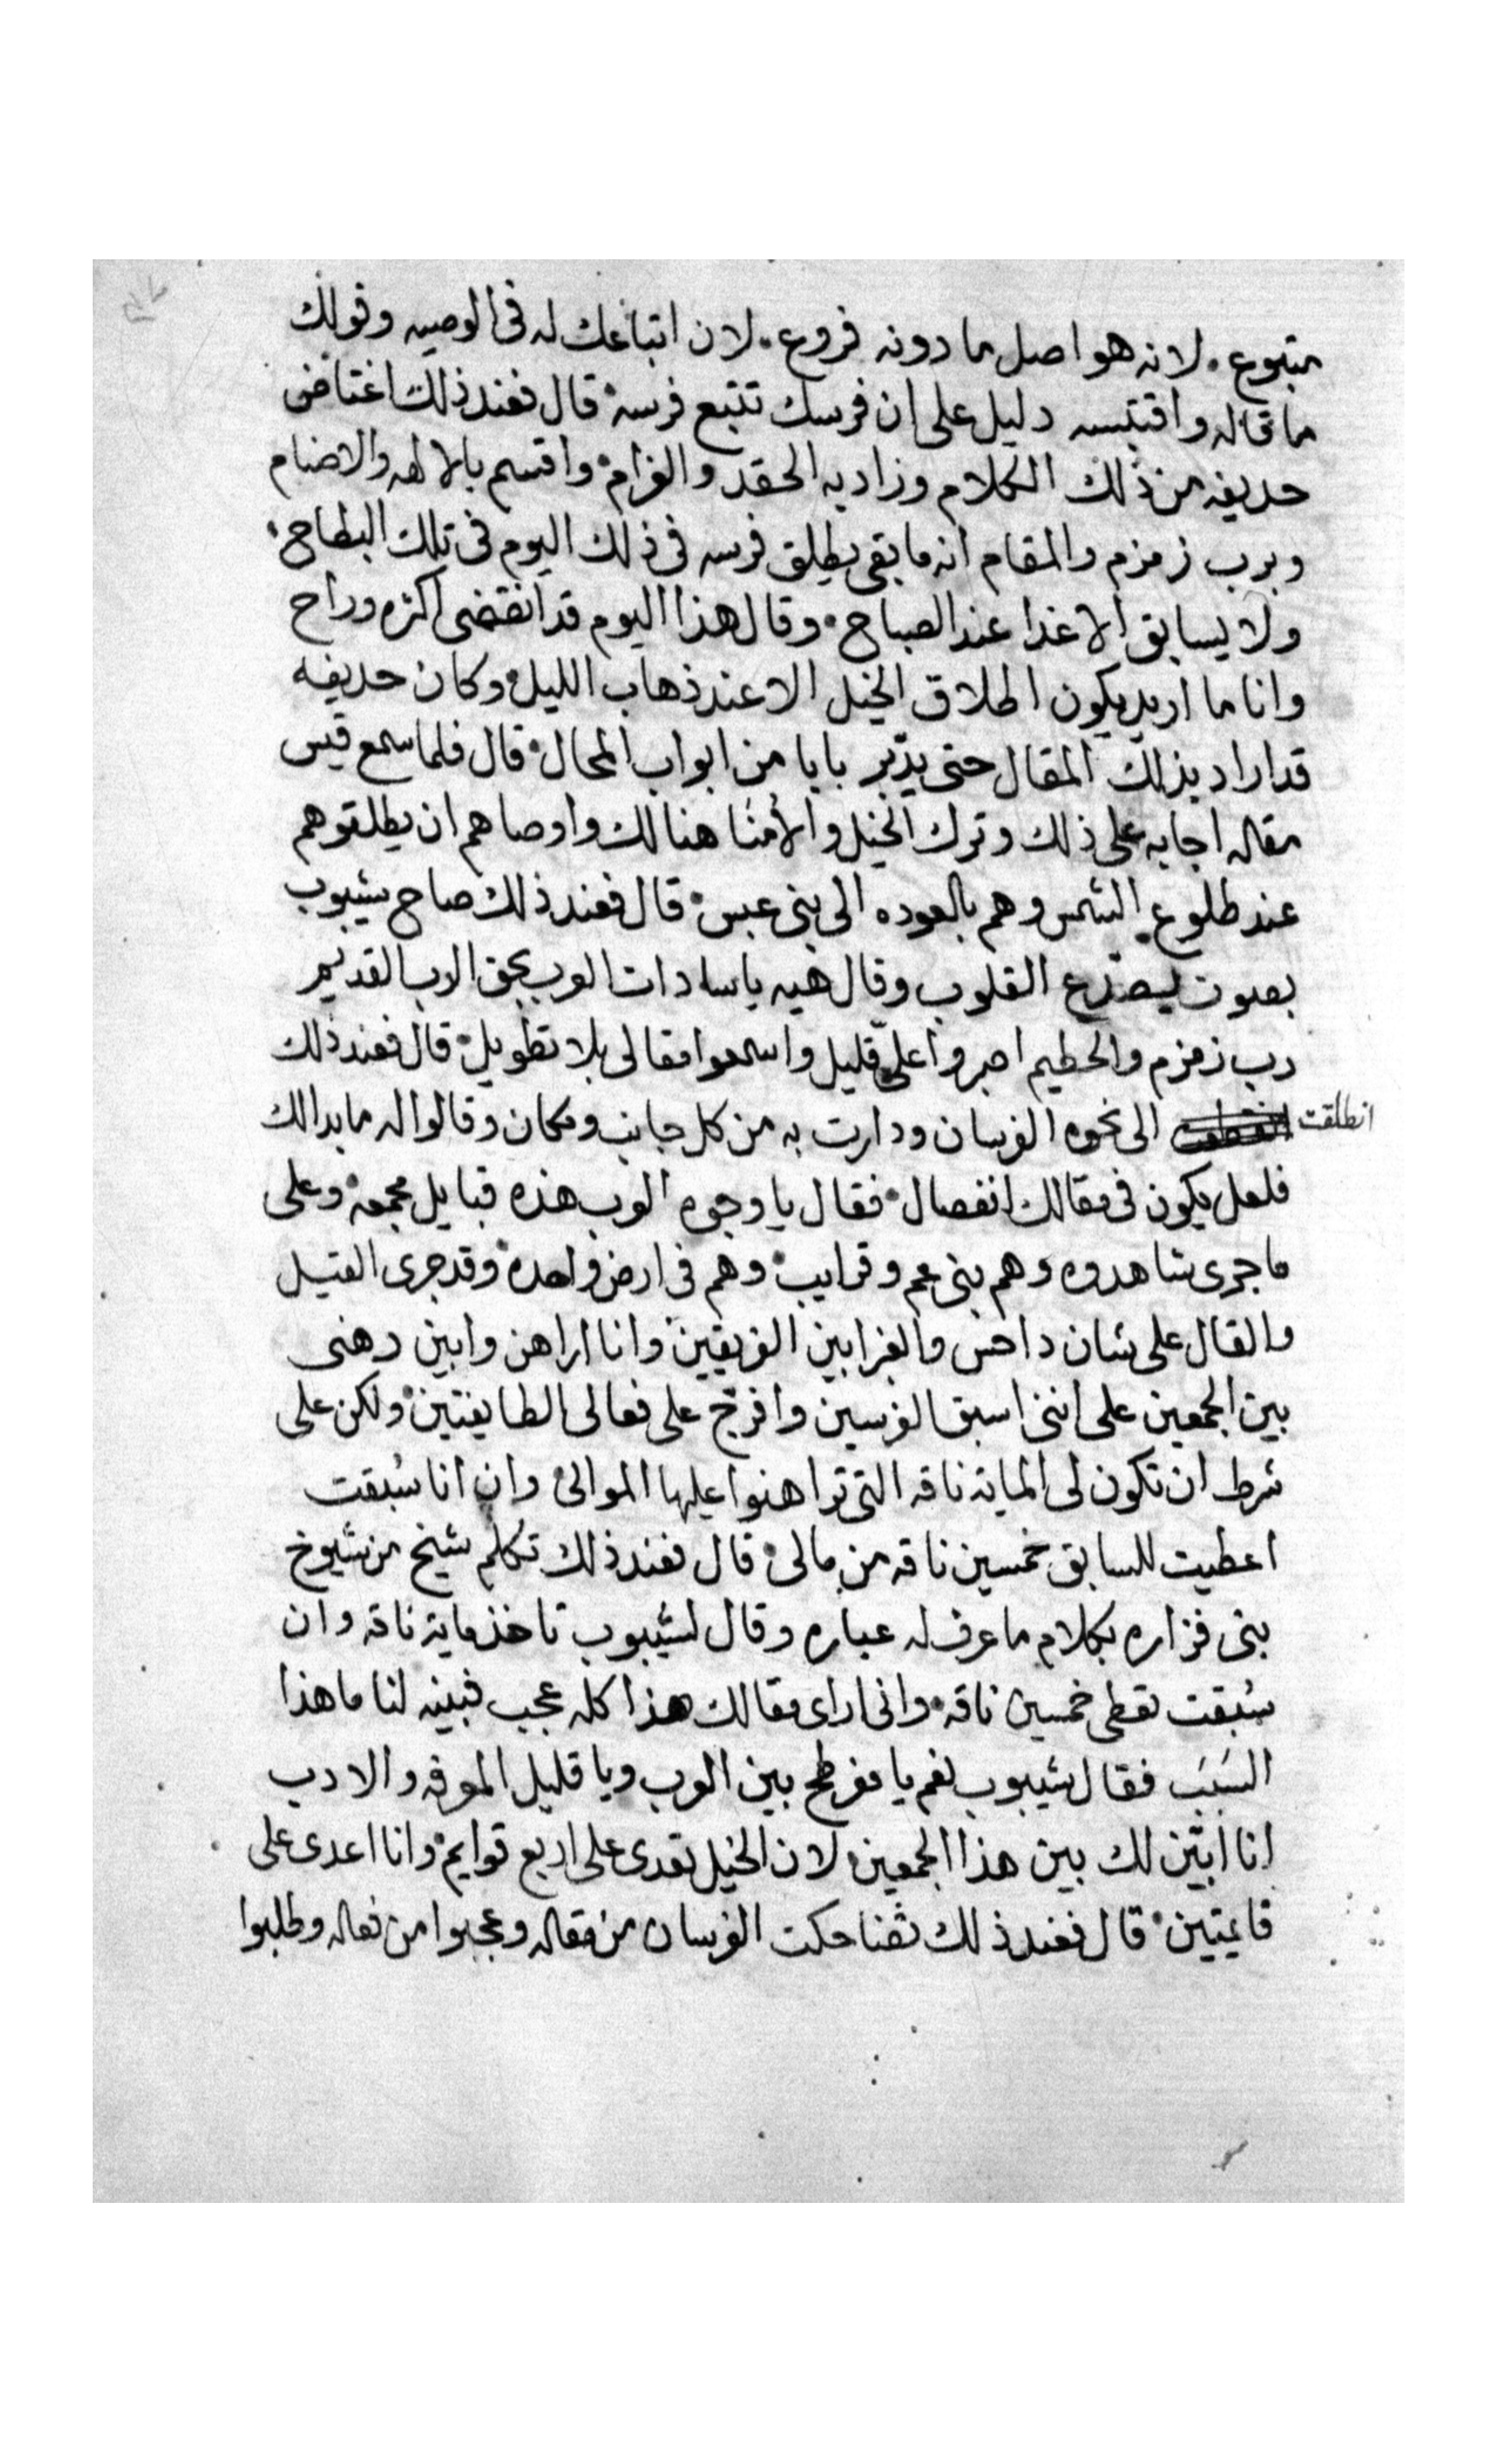 متبوع. لانه هو اصل ما دونه فروع. لان اتباعك له فى الوصيه وقولك
ما قاله واقتبسه دليل على ان فرسك تتبع فرسه قال فعند ذلك اغتاض
حديفه من ذلك الكلام وزاد به الحقد والغرام واقسم بالالهه والاصنام
وبرب زمزم والمقام انه ما بقى يطلق فرسه فى ذلك اليوم فى تلك البطاح
ولا يسابق الا غدا عند الصباح. وقال هذا اليوم قد انقضى اكثره وراح
وانا ما اريد يكون اطلاق الخيل الا عند ذهاب الليل وكان حديفه
قد اراد بذلك المقال حتى يدبّر بابا من ابواب المحال قال فلما سمع قيس
مقاله اجابه على ذلك وترك الخيل والأمنا هنالك واوصاهم ان يطلقوهم
عند طلوع الشمس وهم بالعوده الى بنى عبس قال فعند ذلك صاح شيبوب
بصوت يصدّع القلوب وقال هيه يا سادات العرب بحق الرب القديم
رب زمزم والحطيم اصبروا علىّ قليل واسمعوا مقالى بلا تطويل قال فعند ذلك
انطلقت الى نحوه الفرسان ودارت به من كل جانب ومكان وقالوا له ما بدا لك
فلعل يكون فى مقالك انفصال فقال يا وجوه العرب هذه قبايل مجمعه وعلى
ما جرى شاهدوه وهم بنى عم وقرايب وهم فى ارض واحده وقد جرى القيل
والقال على شان داحس والغبرا بين الفريقين وانا اراهن وابين رهنى
بين الجمعين على اننى اسبق الفرسين وافرّج على فعالى الطايفتين ولكن على
شرط ان تكون لى الماية ناقه التى تراهنوا عليها الموالى وان انا سُبقت
اعطيت للسابق خمسين ناقه من مالى قال فعند ذلك تكلم شيخ من شيوخ
بنى فزاره بكلام ما عرف له عباره وقال لشيبوب تاخذ ماية ناقه وان
سُبقت تعطى خمسين ناقه وانى ارى مقالك هذا كله عجب فبينه لنا ما هذا
السَبَب فقال شيبوب نعم يا مفرطح بين العرب ويا قليل المعرفه والادب
انا ابيّن لك بين هذا الجمعين لان الخيل تعدى على اربع قوايم وانا اعدى على
قايمتين قال فعند ذلك تضاحكت الفرسان من مقاله وعجبوا من فعاله وطلبوا